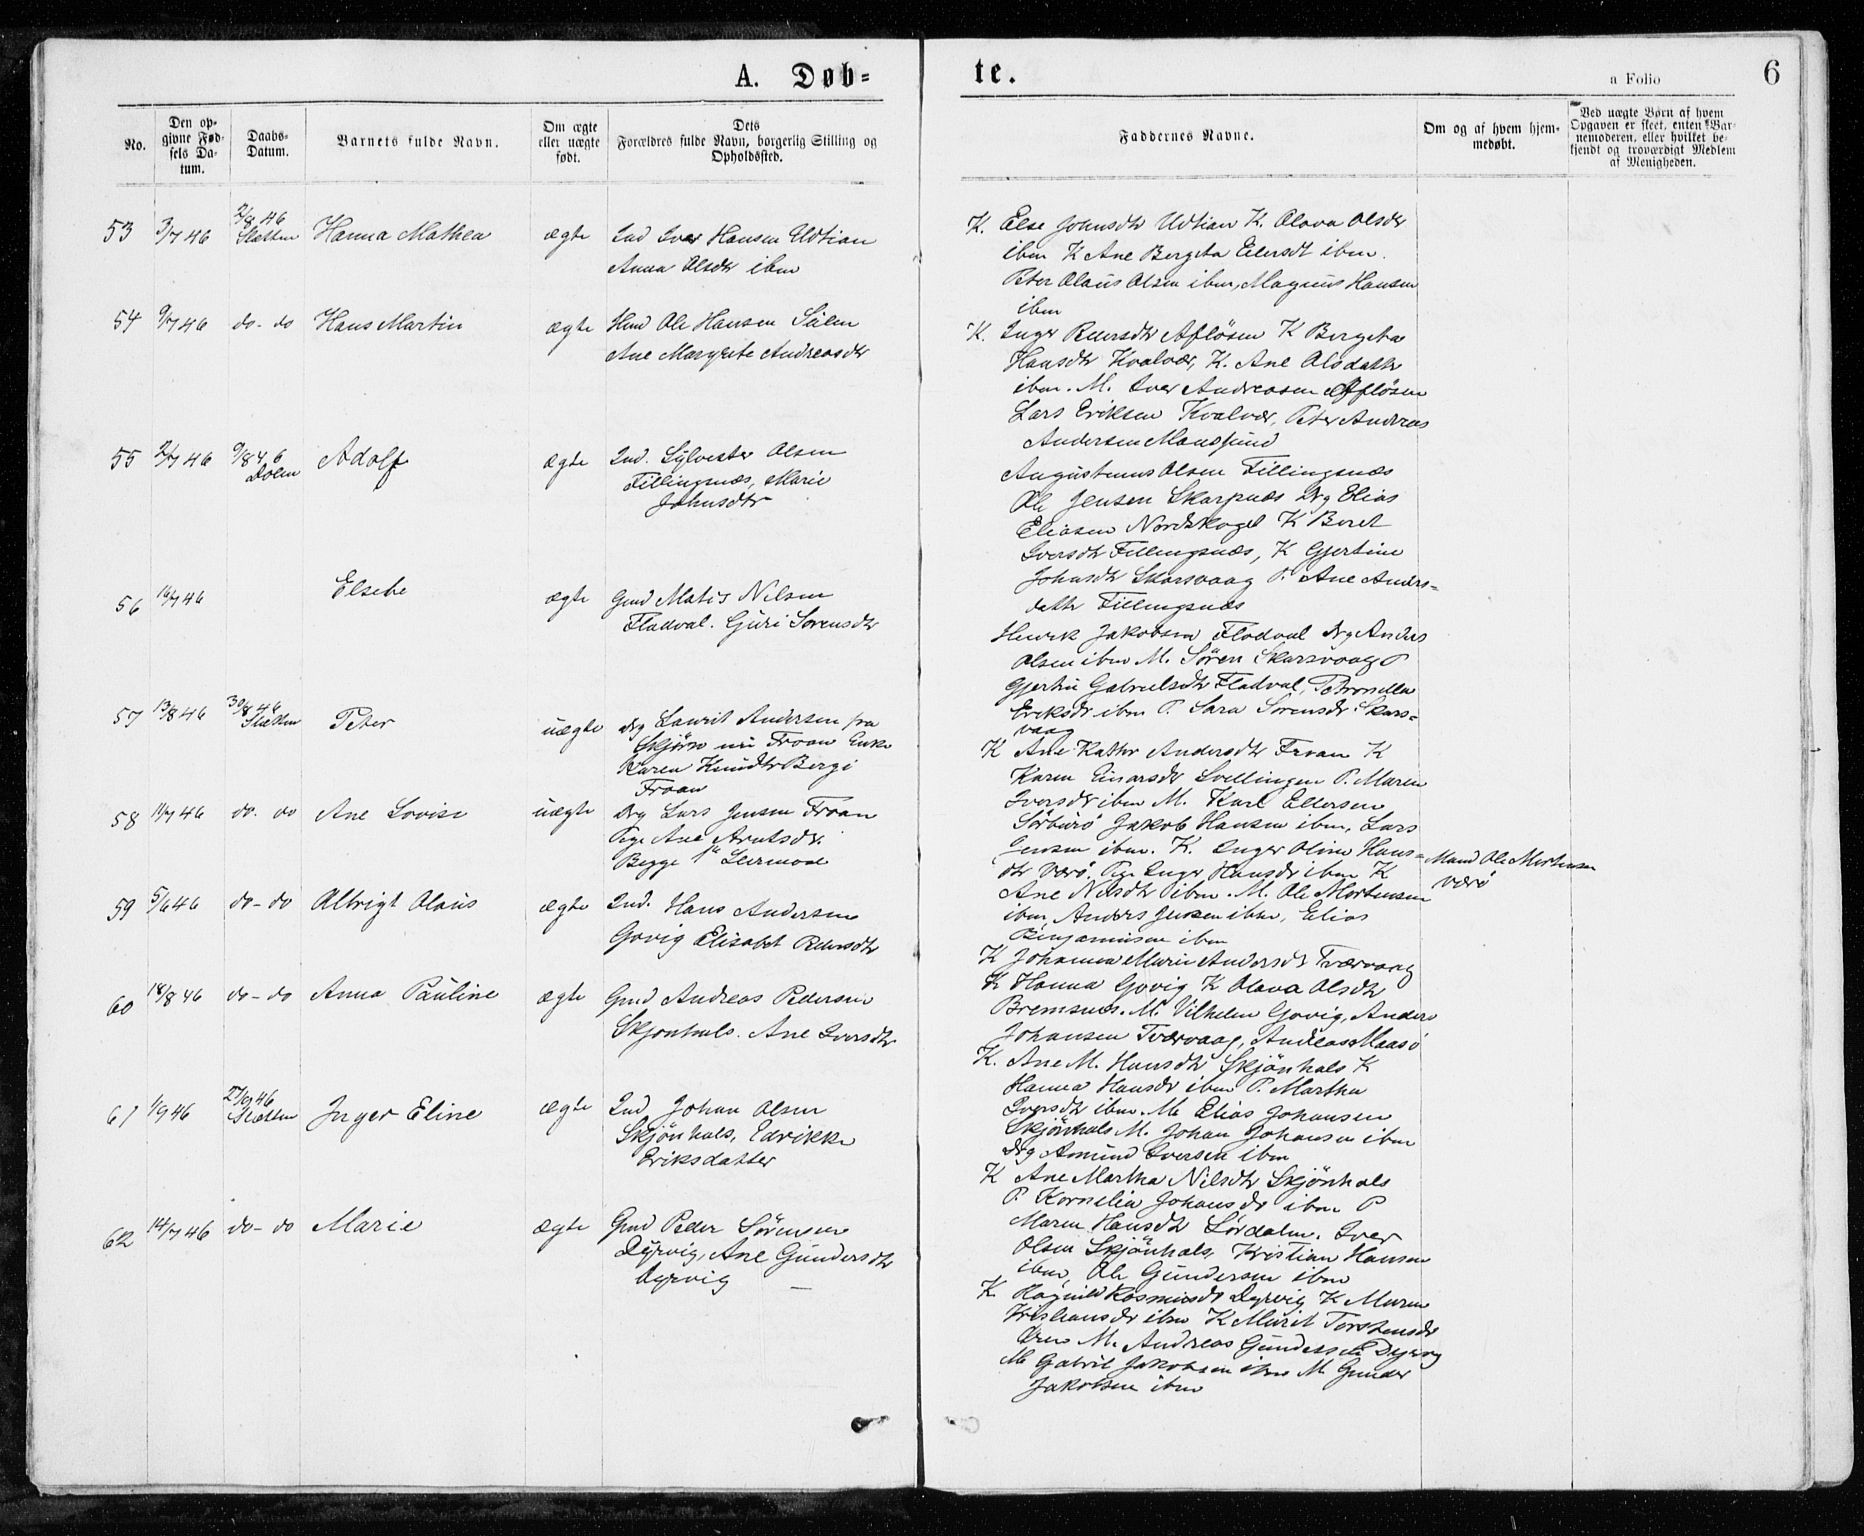 A. Døb-
te.
a Folio
6
No.
Den op-
givne Fød-
sels Da-
tum.
Daabs-
Datum.
Barnets fulde Navn.
Om ægte
eller uægte
født.
Dets
Forældres fulde Navn, borgerlig Stilling og
Opholdssted.
Faddernes Navne.
Om og af hvem hjem-
medøbt.
Ved uægte Børn af hvem
Opgaven er skeet, enten Bar-
nemoderen, eller hvilket be-
kjendt og troværdigt Medlem
af Menigheden.
53 3/7 46 2/8 46 Sletten Hanna Mathea ægte Ind Iver Hansen Udtian
Anna Olsdtr ibm
K. Else Johnsdtr Udtian K. Olava Olsdtr
ibm K Ane Bergeta Eilersdt ibm.
Peter Olaus Olsen ibm, Magnus Hansen
ibm
54 9/7 46 do - do Hans Martin ægte Ole Hansen
Ane Margrete Andreasdtr
K. Inger Pedersdtr Afløsen K Bergeta
Hansdtr Kvalvær, K. Ane Olsdattr
ibm. M. Iver Andreasen Afløsen
Lars Eriksen Kvalvær, Peter Andreas
Andersen
55 2/7 46 9/8 46 Dolm Adolf ægte Ind. Sylvester Olsen
Fillingsnæs, Marie
Johnsdtr
Augustinus Olsen Fillingsnæs
Ole Jensen Skarpnæs Drg Elias
Eliasen Nordskaget K Beret
Iversdtr Fillingsnæs, K Gjertine
Johnsdtr Skarsvaag P. Ane Anders-
dattr Fillingsnæs
56 16/7 46 Elsebe ægte Gmd Matis Nilsen
Fladval. Guri Sørensdtr
Henrik Jakobsen Fladval Drg Anders
Olsen ibm M. Søren Skarsvaag P
Gjertin Gabrielsdtr Fladval, Petronella
Eriksdr ibm P. Sara Sørensdr Skars-
vaag
57 13/8 46 30/8 46 Sletten Peter uægte drg Laurit Andersen fra
Skjørn nu Froan Enke
Karen Knudtr
Froan
K Ane Kathr Andersdtr Froan K
Karen Einarsdr Svellingen P. Maren
Iversdr ibm M. Karl Ellersen
Sørburø Jakob Hansen ibm, Lars
Jensen ibm.
58 11/7 46 do. do Ane Lovise uægte drg Lars Jensen Froan
Pige Ane Arntsdr.
Begge 1ste Leiermaal
K. Inger Oline Hans-
dtr Værø. Pige Inger Hansdr ibm K
Ane Nilsdtr ibm. M. Ole Mortensen
ibm Anders Jensen ibm, Elias
Benjaminsen ibm
Mand Ole Mortensen
Værø
59 5/6 46 do - do Albrigt Olaus ægte Ind. Hans Andersen
Govig Elisabet Pedersdtr
K Johanna Marie Andersdr Tværvaag
K Hanna Govig K Olava Olsdtr
Bremsnes. M. Vilhelm Govig, Anders
Johansen Tværvaag, Andreas Maasø
60 18/8 46 do - do Anna Pauline ægte Gmd Andreas Pedersen
Skjønhals. Ane Iversdtr
K. Ane M. Hansdtr Skjønhals K
Hanna Hansdr ibm P. Martha
Iversdtr ibm. M Elias Johansen
Skjønhals M. Johan Johansen ibm
Drg Amund Iversen ibm
61 1/9 46 27/9 46 Sletten Inger Eline ægte Ind Johan Olsen
Skjønhals, Edrikke
Eriksdatter
K Ane Martha Nilsdtr Skjønhals
P. Kornelia Johansdr ibm P
Maren Hansdtr Sørdalen. Iver
Olsen Skjønhals, Kristian Hansen
ibm, Ole Gundersen ibm
62 14/7 46 do - do Marie ægte Gmd Peder Sørensen
Dyrvig, Ane Gundersdtr
Dyrvig
K. Ragnild Rasmusdr Dyrvig K Maren
Kristiansdr ibm K Marit Torstensdr
M. Andreas Gundersen Dyrvig
M Gabriel Jakobsen ibm M Gunder
Jakobsen ibm